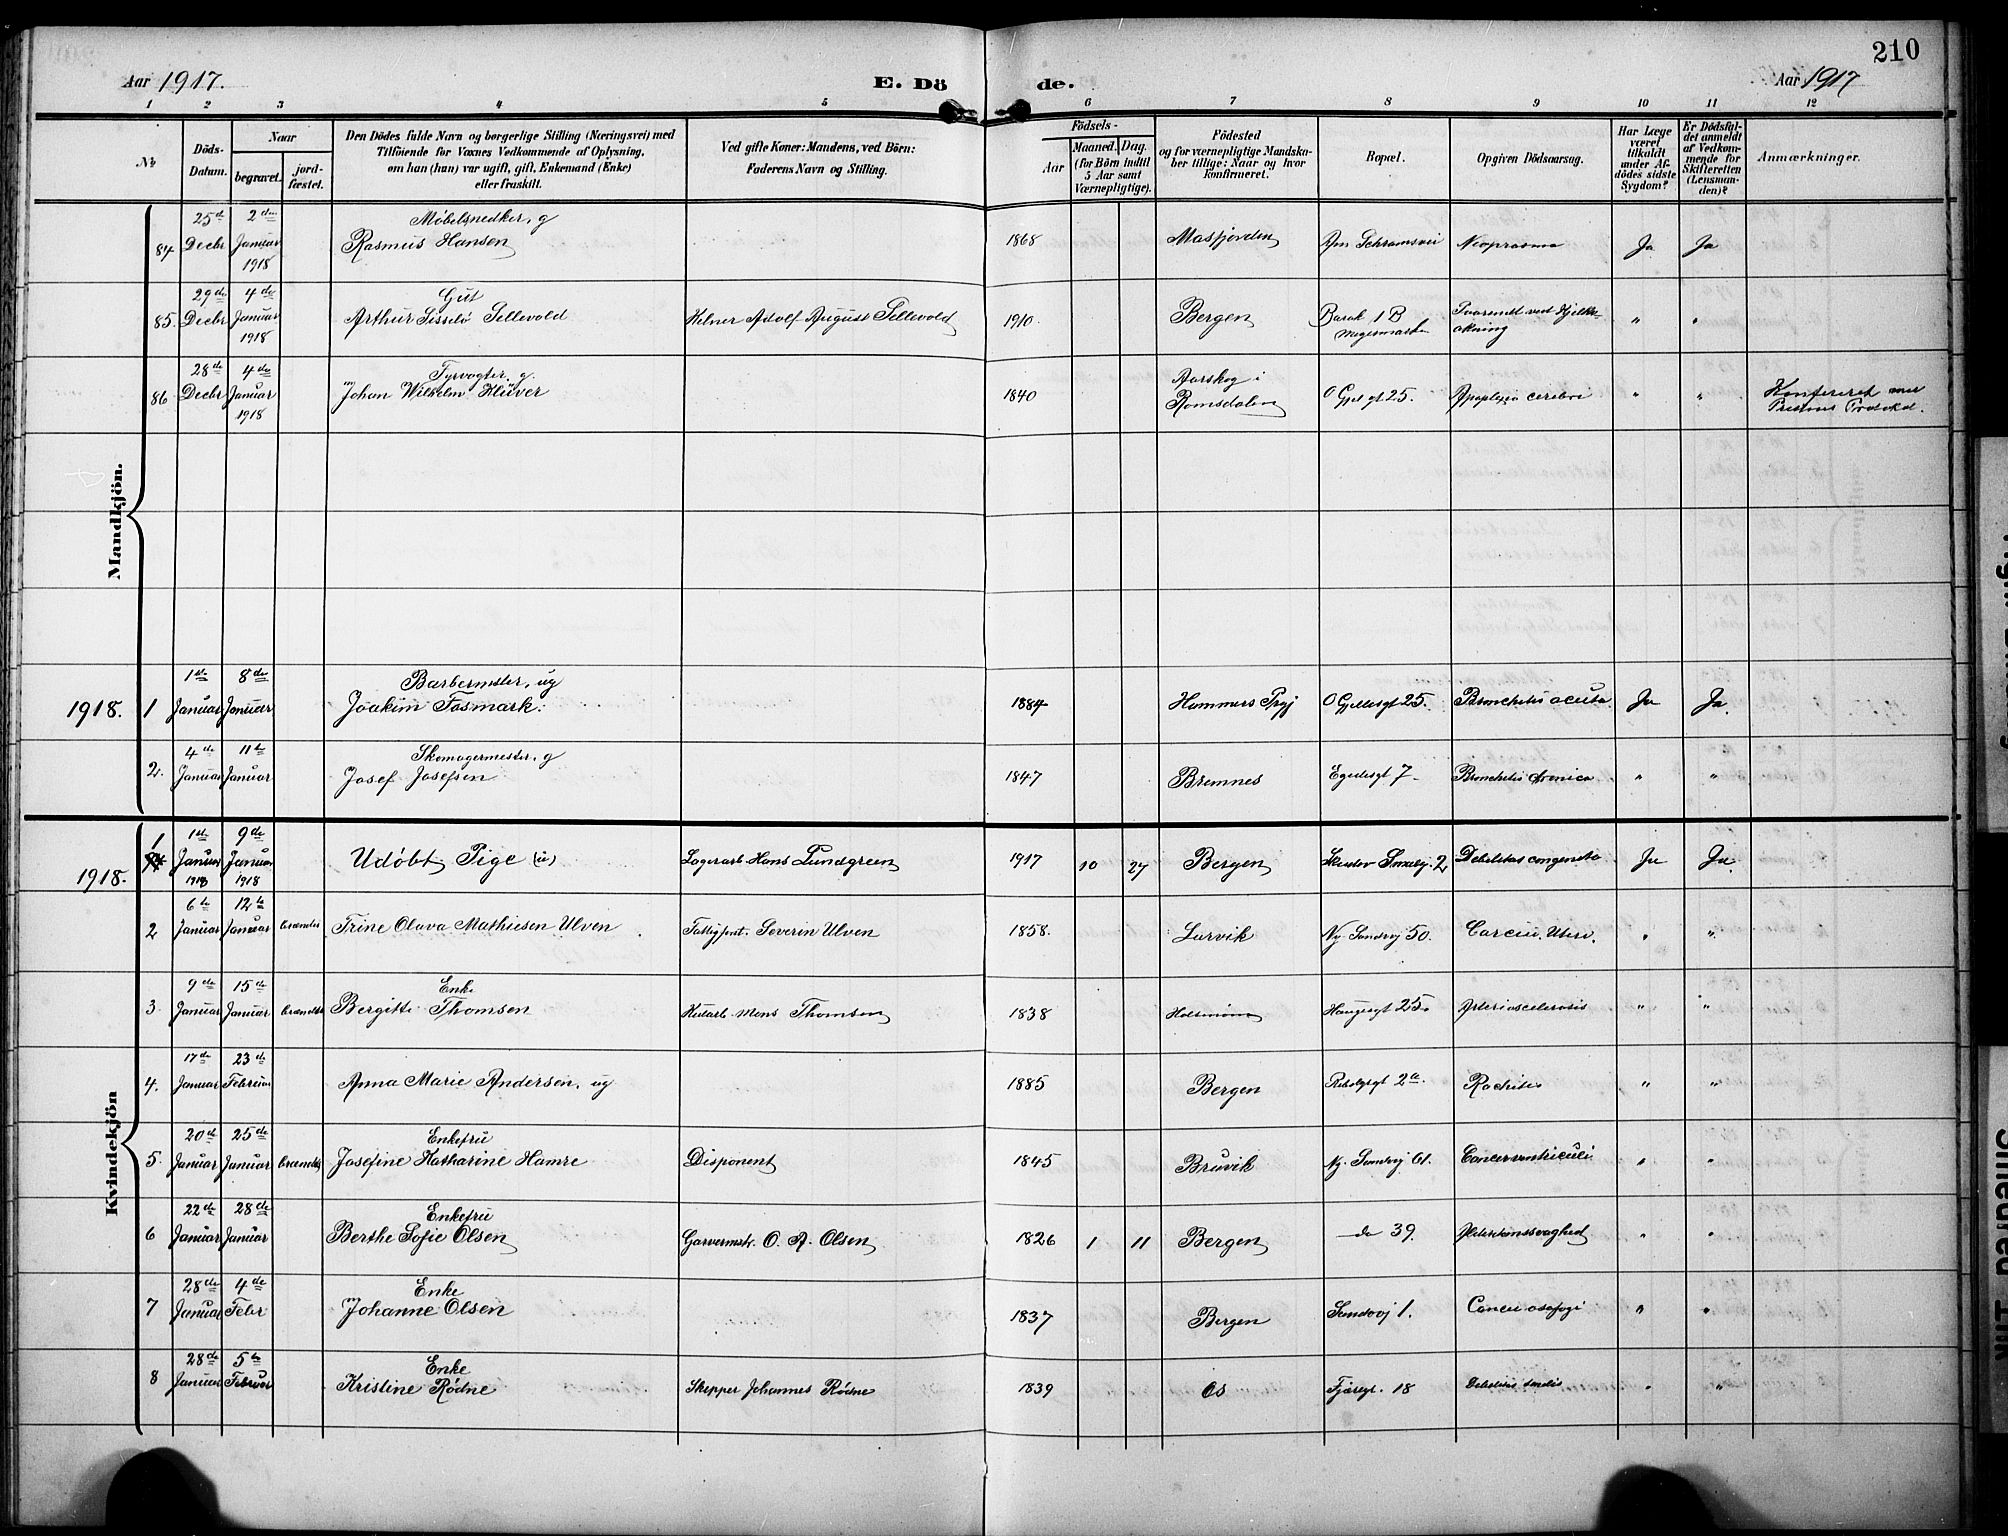 210
Aar 1917.
E. Dö de.
Aar 1917
1 2 3 4 5 6 7 8 9 10 11 12
No
Döds-Datum.
Naar
begravet.
jord-fæstet.
Den Dödes fulde Navn og borgerlige Stilling (Næringsvei) med
Tilföiende for Voxnes Vedkommende af Oplysning,
om han (hun) var ugift, gift, Enkemand (Enke)
eller fraskilt.
Ved gifte Koner: Mandens, ved Börn:
Faderens Navn og Stilling.
Födsels-
Aar
Maaned. Dag.
(for Börn indtil
5 Aar samt
Værnepligtige).
Födested
og for værnepligtige Mandska-
ber tillige: Naar og hvor
konfirmeret.
Bopæl.
Opgiven Dödsaarsag.
Har Læge
været
tilkaldt
under Af-
dödes sidste
Sygdom?
Er Dödsfal-
det anmeldt
af Vedkom-
mende for
Skifteretten
(Lensman-
den)?
Anmærkninger.
Mandkjön.
25de 2den Möbelsnedker, g
84 Decbr Januar Rasmus Hansen 1868 Masfjorden Ja Ja
1918
29de 4de Gut
85. Decbr Januar Arthur Sellevold Helner Adolf August Sellevold 1910. Bergen Barak 1 B " "
1918
28de 4de Fyrvogter, g.
86 Decbr Januar Johan Wilhelm Klüver 1840 Aarskog i Romsdalen 25. Apoplexia cerebri " " Konfereret med
1918 Prestens Protokol.
1ste 8de Barbermster, ug
1918. 1 Januar Januar Joakim Fosmark. 1884 Hammers Prgj 25. Bronchitis acuta Ja Ja.
4de 11te Skomagermester, g
2. Januar Januar Josef Josefsen 1847 Bremnes Egedesgt 7 Bronchitis cronica " "
Kvindekjön
1 1ste 9de
1918. Januar Januar Udöbt Pige (u) Lagerarb Hans Lundgreen 1917 10 27 Bergen 2 Debilitas congenita Ja Ja.
1918 1918
6te 12te
2 Januar Januar brændes Trine Olava Mathiesen Ulven Severin Ulven 1858. Larvik Ny. Sandvj 50. Carcin. Uteri. " "
9de 15de Enke
3 Januar Januar brændes Bergitte Thomsen Mons Thomsen 1838 Haugesgt 25 Arterioscelerosis " "
17de 23de
4. Januar Februar Anna Marie Andersen, ug 1885 Bergen Rachitis " "
20de 25de Enkefru
5. Januar Januar brændes Josefine Katharine Hamre Disponent 1845 Bruvik Ny. Sandvj 61. Cancer ventriculi " "
22de 28de Enkefru
6 Januar Januar Berthe Sofie Olsen Garvermstr. O. A. Olsen 1826 1 11 Bergen do 39. Alderdomssvaghed " "
28de 4de Enke
7 Januar Febr Johanne Olsen 1837 Bergen Sandvj 1. " "
28de 5te Enke
8 Januar Februar Kristine Rödne Skipper Johannes Rödne 1839 Os 18 Debilitas senilis " "